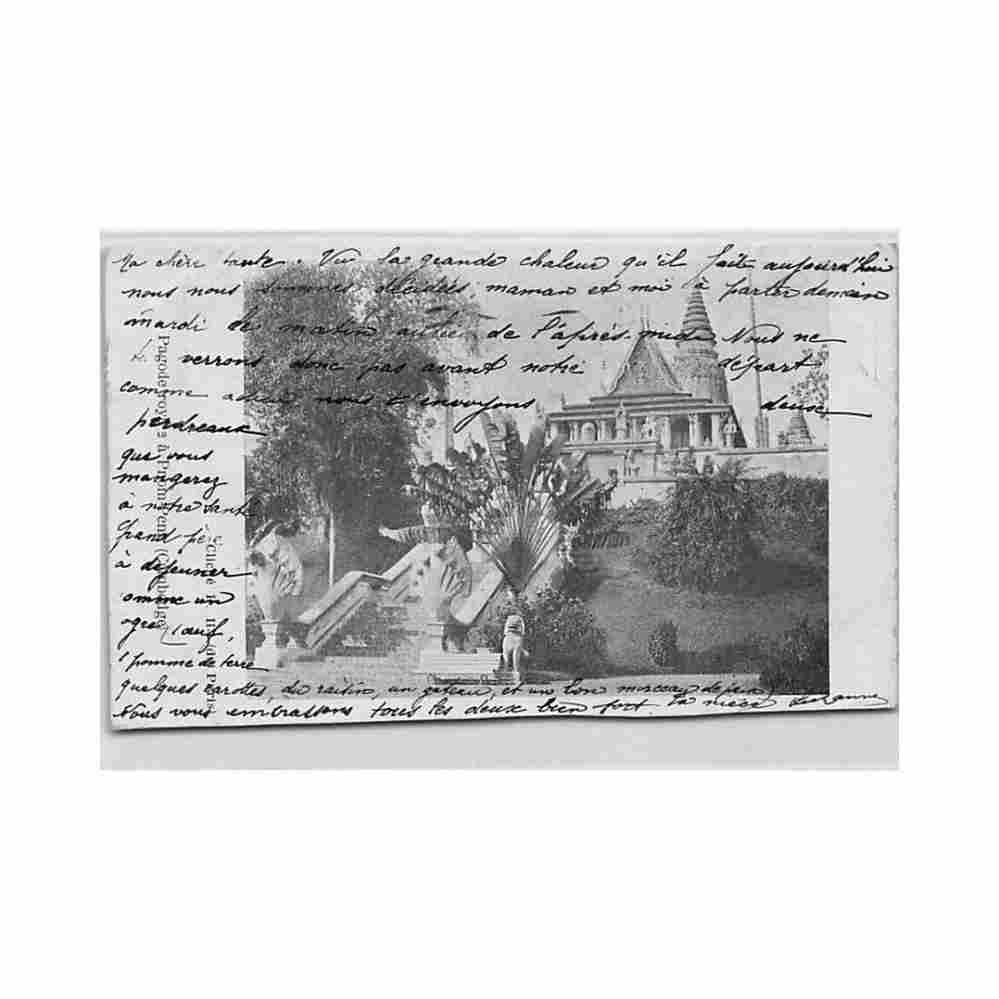 Ma chère tante. Vu la grande chaleur qu'il faite aujourd'hui
nous nous sommes décidées maman et moi à partir demain
mardi de matin au lieu de l'après-midi Nous ne
verrons donc pas avant notre départ
comme adieu nous t'envoyons deux
perdreaux
que vous
mangerez
à notre santé
grand père
à déjeuner
comme un
ogre 1 œuf,
1 pomme de terre
quelques carottes, du raisin, un gateau, et un bon morceau de
Nous vous embrassons tous les deux bien fort. ta nièce Suzanne
Pagode royale à Pnom-Penh (Cambodge)
Cliché Paris